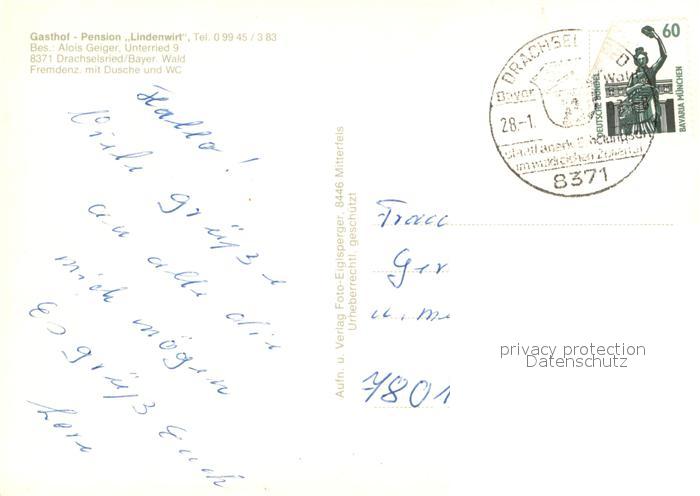 Gasthof - Pension „Lindenwirt“, Tel. 0 99 45 / 3 83
Bes.: Alois Geiger, Unterried 9
8371 Drachselsried/Bayer. Wald
Fremdenz. mit Dusche und WC
Hallo!
Viele Grüße
an alle die
mich mögen
Es grüßt Euch
Lore
Aufn. u. Verlag Foto-Eiglsperger, 8446 Mitterfels
Urheberrechtl. geschützt
DRACHSEL D
Bayer. wald
28.-1.
staatl anerk Erholungsort
im waldreichen Zellertal
8371
60
DEUTSCHE BUNDES
BAVARIA MÜNCHEN
Frau
Ger
u.
7801
privacy protection
Datenschutz